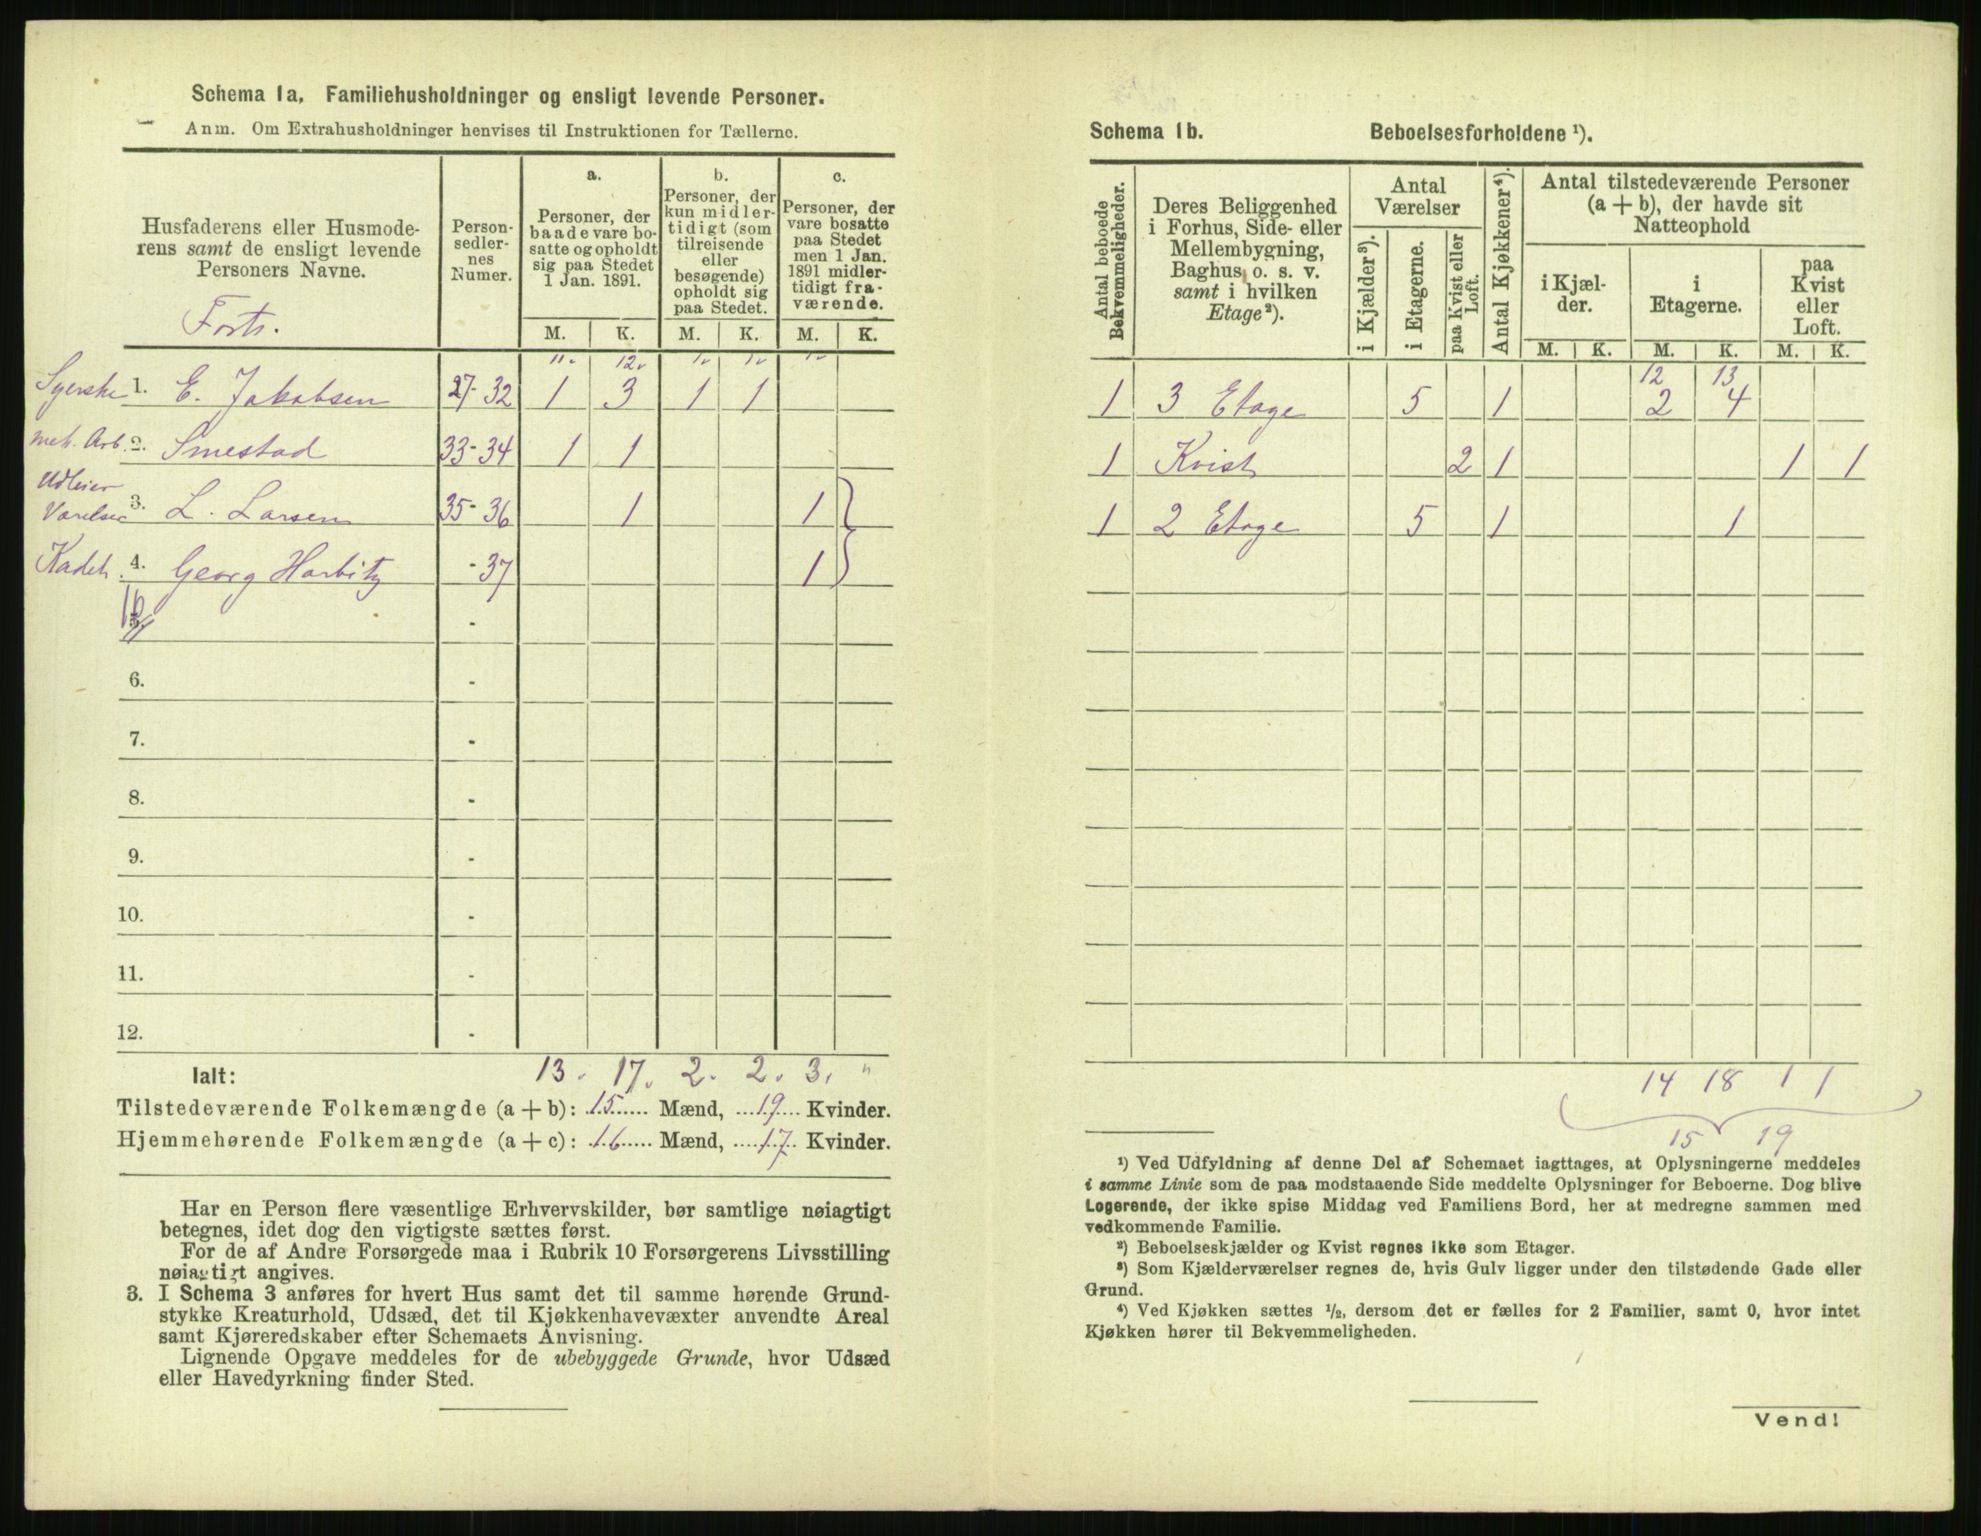 Schema 1a. Familiehusholdninger og ensligt levende Personer.
Anm. Om Extrahusholdninger henvises til Instruktionen for Tællerne.
Husfaderens eller Husmoderens samt de ensligt levende Personers Navne.
Forts.
Personsedlernes Numer.
a.
Personer, der baade vare bosatte og opholdt sig paa Stedet 1 Jan. 1891.
b.
Personer, der kun midlertidigt (som tilreisende eller besøgende) opholdt sig paa Stedet.
c.
Personer, der vare bosatte paa Stedet men 1 Jan. 1891 midlertidigt fraværende.
M. K. M. K. M. K.
11. 12. 1. 1. 1.
Syerske 1. E. Jakobsen 27-32 1 3 1 1
mek. Arb. 2. Smestad 33-34 1 1
Udleier
Værelser 3. L. Larsen 35-36 1 1
Kadet. 4. Georg Harbitz -37 1
16
5. -
6. -
7. -
8. -
9. -
10. -
11. -
12. -
Ialt: 13. 17. 2. 2. 3. "
Tilstedeværende Folkemængde (a + b): 15 Mænd, 19 Kvinder.
Hjemmehørende Folkemængde (a + c): 16 Mænd, 17 Kvinder.
Har en Person flere væsentlige Erhvervskilder, bør samtlige nøiagtigt
betegnes, idet dog den vigtigste sættes først.
For de af Andre Forsørgede maa i Rubrik 10 Forsørgerens Livsstilling
nøiagtigt angives.
3. I Schema 3 anføres for hvert Hus samt det til samme hørende Grund-
stykke Kreaturhold, Udsæd, det til Kjøkkenhavevæxter anvendte Areal
samt Kjøreredskaber efter Schemaets Anvisning.
Lignende Opgave meddeles for de ubebyggede Grunde, hvor Udsæd
eller Havedyrkning finder Sted.
Schema 1b. Beboelsesforholdene ¹).
Antal beboede Bekvemmeligheder.
Deres Beliggenhed i Forhus, Side- eller Mellembygning, Baghus o. s. v. samt i hvilken Etage²).
Antal Værelser
i Kjælder³).
i Etagerne.
paa Kvist eller Loft.
Antal Kjøkkener⁴).
Antal tilstedeværende Personer (a + b), der havde sit Natteophold
i Kjælder.
i Etagerne.
paa Kvist eller Loft.
M. K. M. K. M. K.
12 13
1 3 Etage 5 1 2 4
1 Kvist 2 1 1 1
1 2 Etage 5 1 1
14 18 1 1
15 19
¹) Ved Udfyldning af denne Del af Schemaet iagttages, at Oplysningerne meddeles
i samme Linie som de paa modstaaende Side meddelte Oplysninger for Beboerne. Dog blive
Logerende, der ikke spise Middag ved Familiens Bord, her at medregne sammen med
vedkommende Familie.
²) Beboelseskjælder og Kvist regnes ikke som Etager.
³) Som Kjælderværelser regnes de, hvis Gulv ligger under den tilstødende Gade eller
Grund.
⁴) Ved Kjøkken sættes ½, dersom det er fælles for 2 Familier, samt 0, hvor intet
Kjøkken hører til Bekvemmeligheden.
Vend!